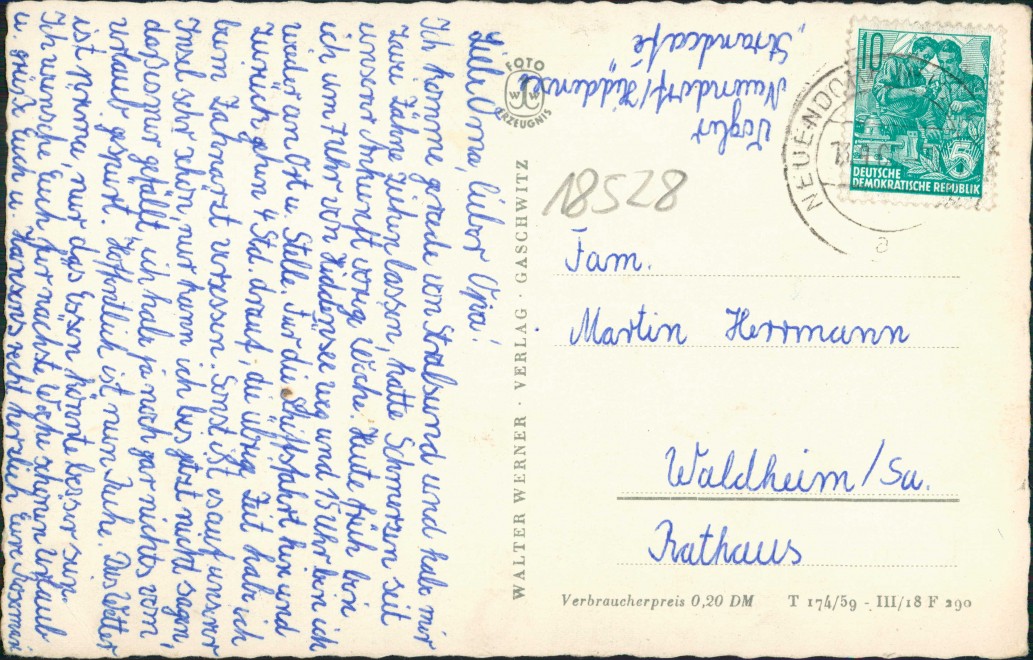 Liebe Oma, lieber Opa!
Ich komme grade von Stralsund und habe mir
zwei Zähne ziehen lassen, hatte Schmerzen seit
unserer Ankunft vorig. Woche. Heute früh bin
ich um 7 Uhr von Hiddensee weg und 15 Uhr bin ich
wieder an Ort u. Stelle. Für die Schiffsfahrt hin und
zurück gehen 4 Std. drauf, die übrig. Zeit habe ich
beim Zahnarzt vergessen. Sonst ist es auf unserer
Insel sehr schön, nur kann ich bis jetzt nicht sagen,
daß es mir gefällt, ich habe ja noch gar nichts vom
Urlaub gespürt. Hoffentlich ist nun Ruhe. Das Wetter
ist prima, nur das Essen könnte besser sein.
Ich wünsche Euch für nächste Woche schönen Urlaub
u. grüße Euch u. Hansens recht herzlich Eure
FOTO
WW
ERZEUGNIS
WALTER WERNER · VERLAG · GASCHWITZ
Vogler
Neuendorf/Hiddensee
"Strandcafé"
18528
10
5
DEUTSCHE
DEMOKRATISCHE REPUBLIK
NEUENDO
a
Fam.
Martin Herrmann
Waldheim/Sa.
Rathaus
Verbraucherpreis 0,20 DM T 174/59 - III/18 F 290